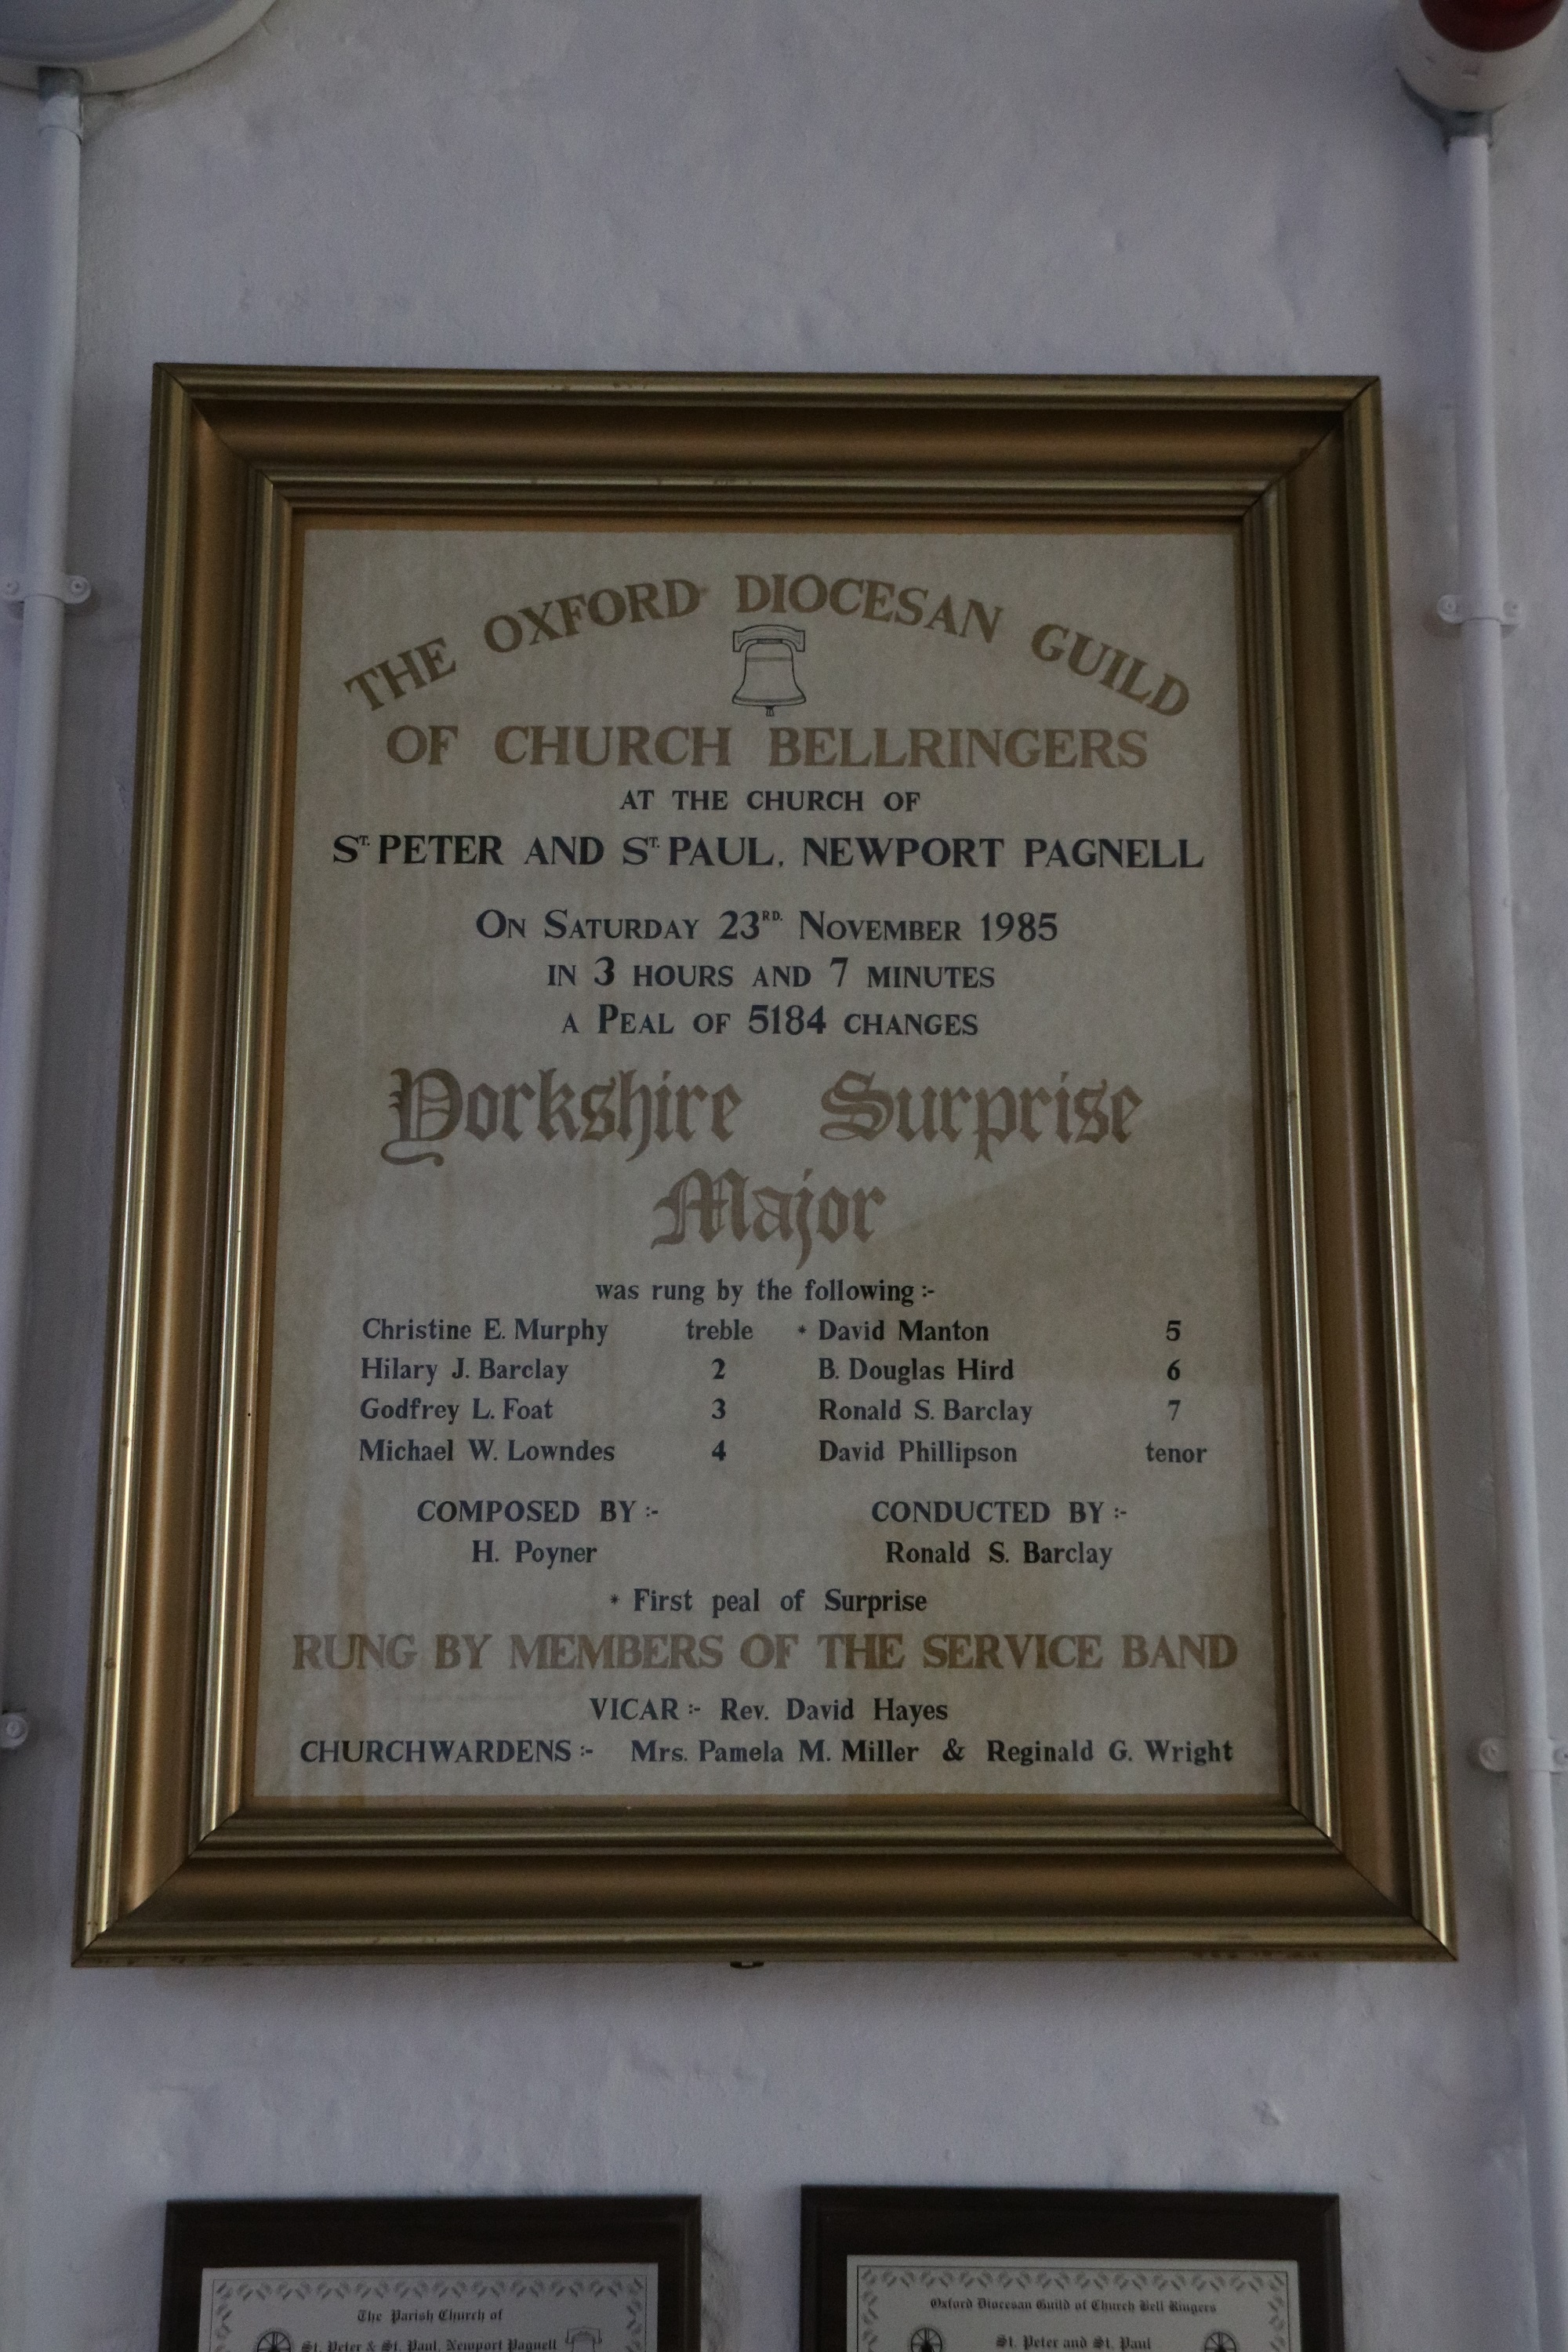 THE OXFORD DIOCESAN GUILD
OF CHURCH BELLRINGERS
AT THE CHURCH OF
ST. PETER AND ST. PAUL, NEWPORT PAGNELL
ON SATURDAY 23RD. NOVEMBER 1985
IN 3 HOURS AND 7 MINUTES
A PEAL OF 5184 CHANGES
Yorkshire Surprise
Major
was rung by the following :-
Christine E. Murphy treble * David Manton 5
Hilary J. Barclay 2 B. Douglas Hird 6
Godfrey L. Foat 3 Ronald S. Barclay 7
Michael W. Lowndes 4 David Phillipson tenor
COMPOSED BY :- CONDUCTED BY :-
H. Poyner Ronald S. Barclay
* First peal of Surprise
RUNG BY MEMBERS OF THE SERVICE BAND
VICAR :- Rev. David Hayes
CHURCHWARDENS :- Mrs. Pamela M. Miller & Reginald G. Wright
The Parish Church of
St. Peter & St. Paul, Newport Pagnell
Oxford Diocesan Guild of Church Bell Ringers
St. Peter and St. Paul